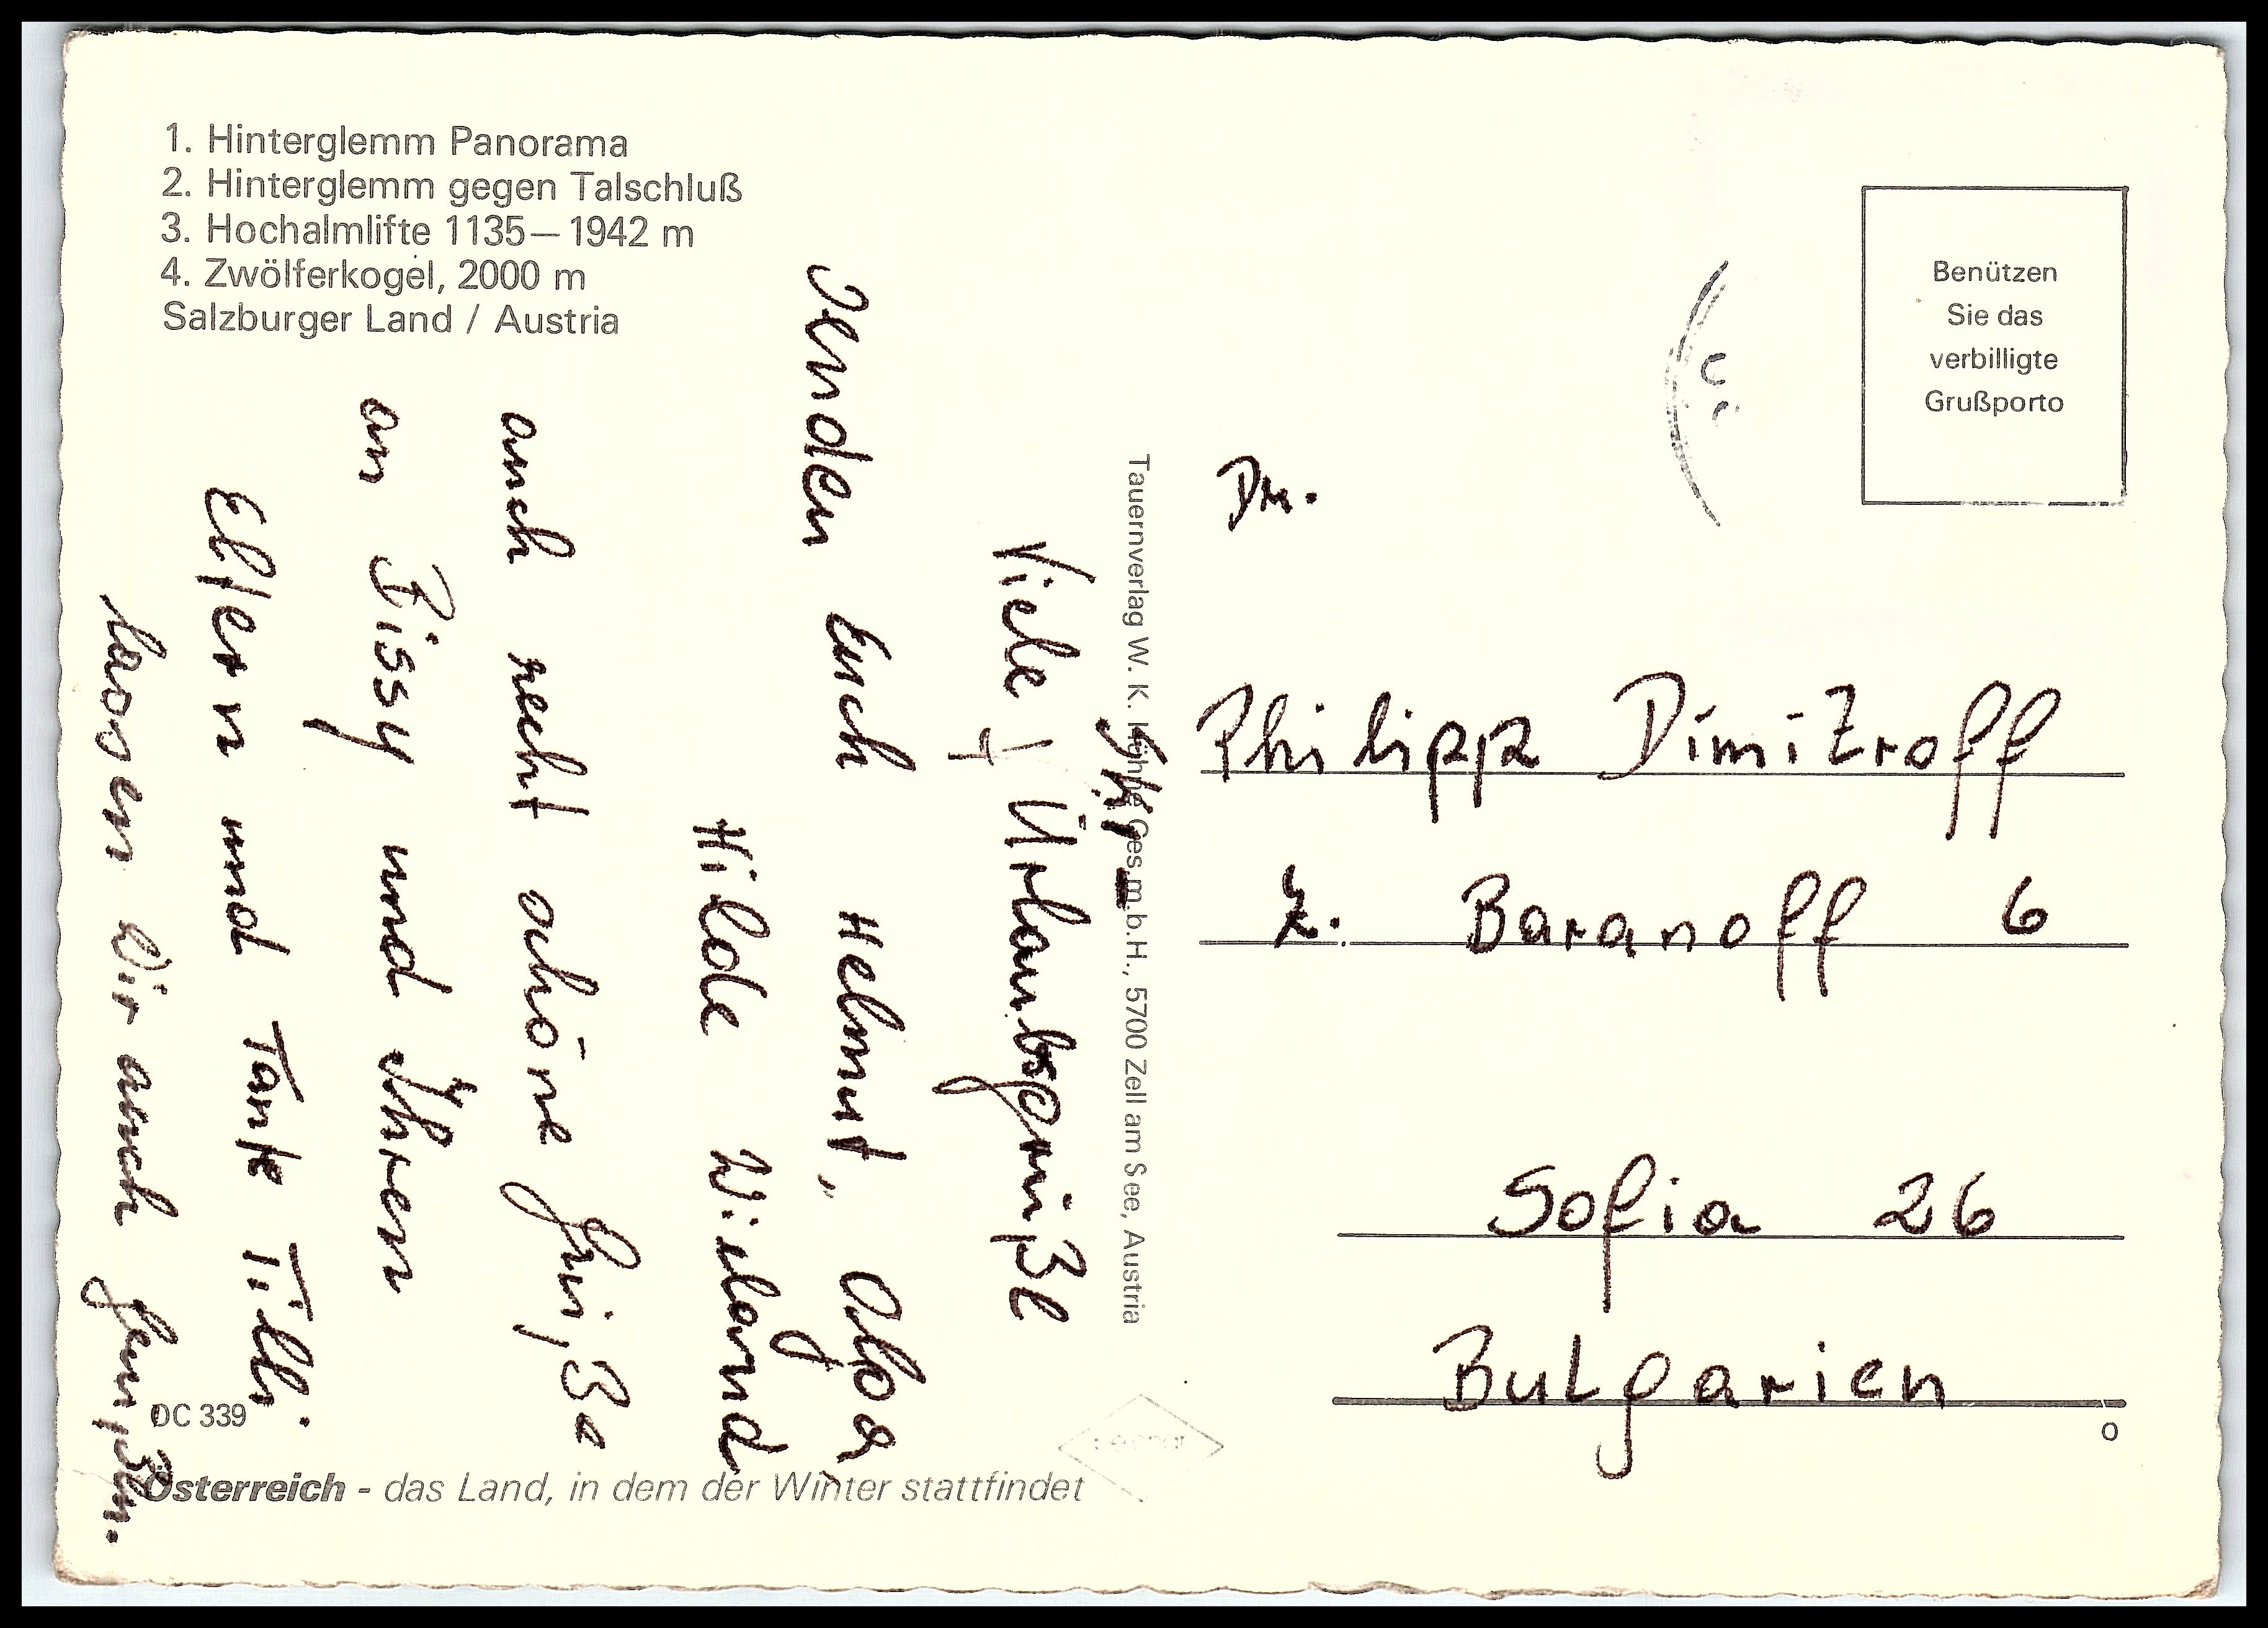 1. Hinterglemm Panorama
2. Hinterglemm gegen Talschluß
3. Hochalmlifte 1135—1942 m
4. Zwölferkogel, 2000 m
Salzburger Land / Austria
Viele Urlaubsgrüße
Ski-
senden Euch Helmut, Olga,
Hilde Wieland
auch recht schöne Grüße
an Sissy und Ihren
Eltern und Tante Tilli.
lassen wir auch grüßen.
DC 339
Österreich - das Land, in dem der Winter stattfindet
Tauernverlag W. K. Höhne Ges.m.b.H., 5700 Zell am See, Austria
Benützen
Sie das
verbilligte
Grußporto
Dr.
Philipp Dimitroff
Ž. Baranoff 6
Sofia 26
Bulgarien